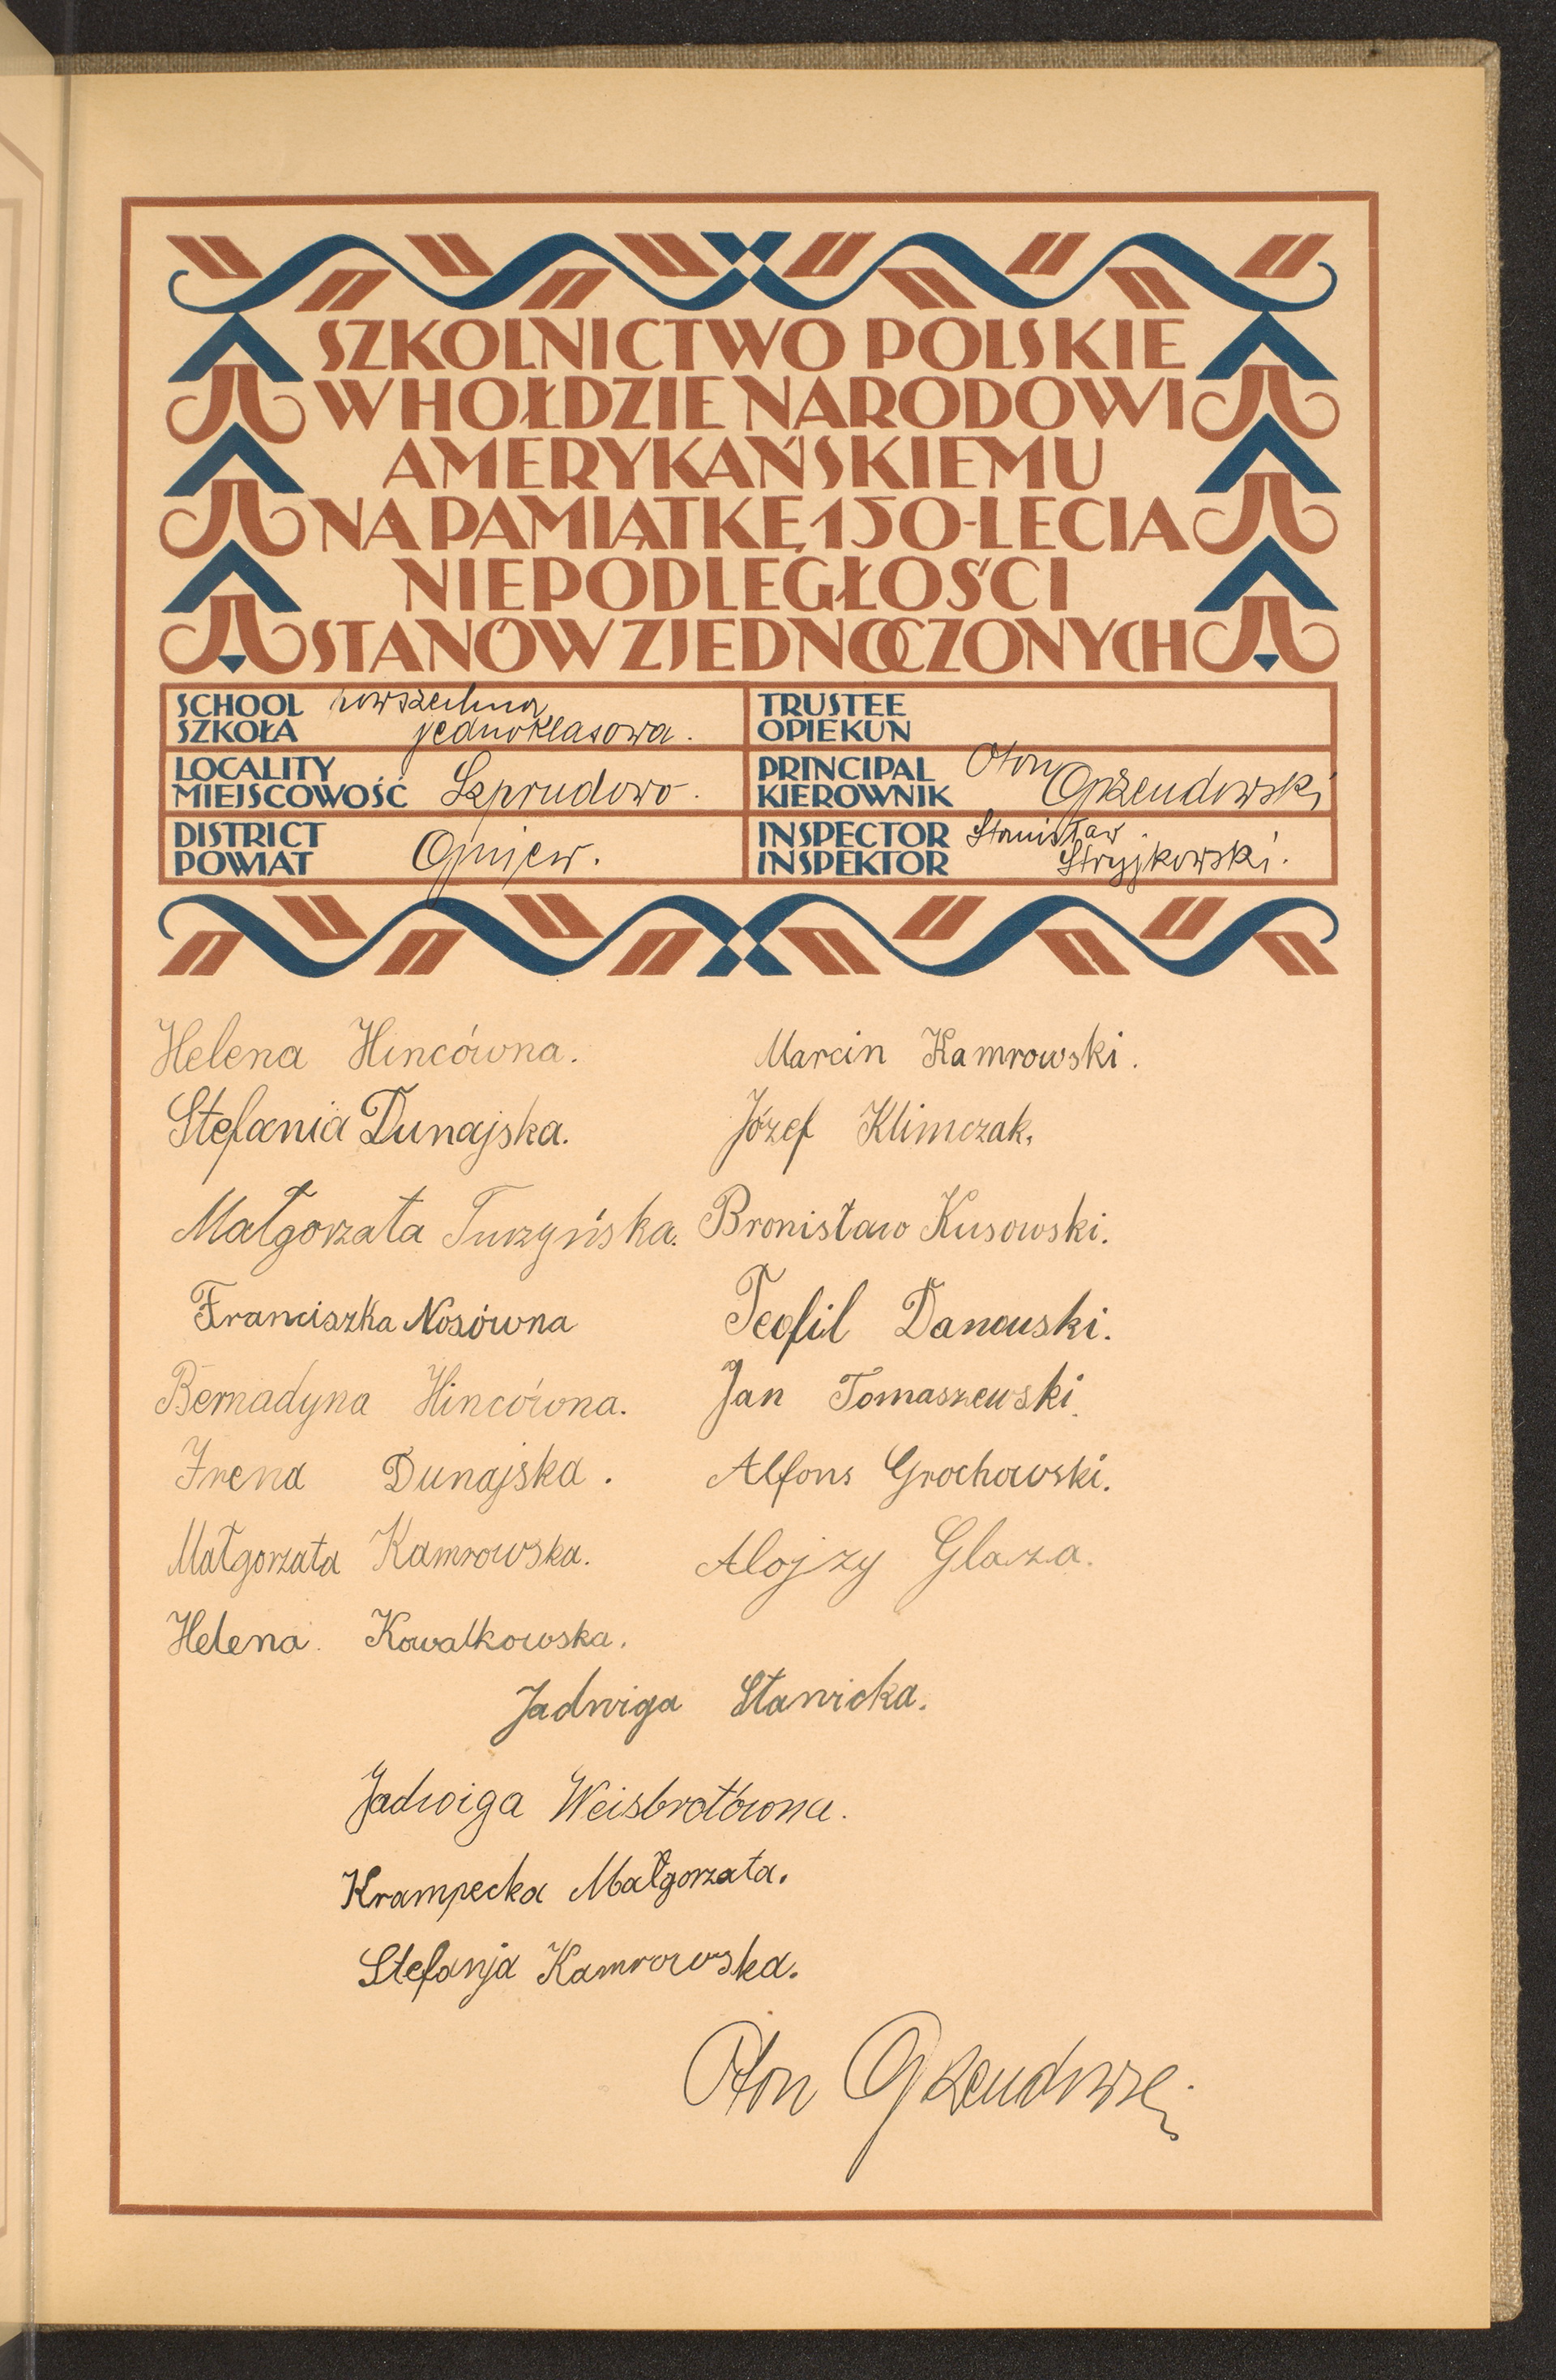 SZKOLNICTWO POLSKIE
W HOŁDZIE NARODOWI
AMERYKAŃSKIEMU
NA PAMIĄTKĘ 150-LECIA
NIEPODLEGŁOŚCI
STANÓW ZJEDNOCZONYCH
SCHOOL
SZKOŁA
powszechna
jednoklasowa.
TRUSTEE
OPIEKUN
LOCALITY
MIEJSCOWOŚĆ
Szprudowo.
PRINCIPAL
KIEROWNIK
Oton
DISTRICT
POWIAT
Gniew.
INSPECTOR
INSPEKTOR
Stanisław
Stryjkowski.
Helena Hincówna.
Stefania Dunajska.
Małgorzata Turzyńska.
Franciszka Nosówna
Bernadyna Hincówna.
Irena Dunajska.
Małgorzata Kamrowska.
Helena Kowalkowska.
Marcin Kamrowski.
Józef Klimczak.
Bronisław Kusowski.
Teofil Danowski.
Jan Tomaszewski.
Alfons Grochowski.
Alojzy Glaza.
Jadwiga Stawicka.
Jadwiga Weisbrotówna.
Krampecka Małgorzata.
Stefanja Kamrowska.
Oton